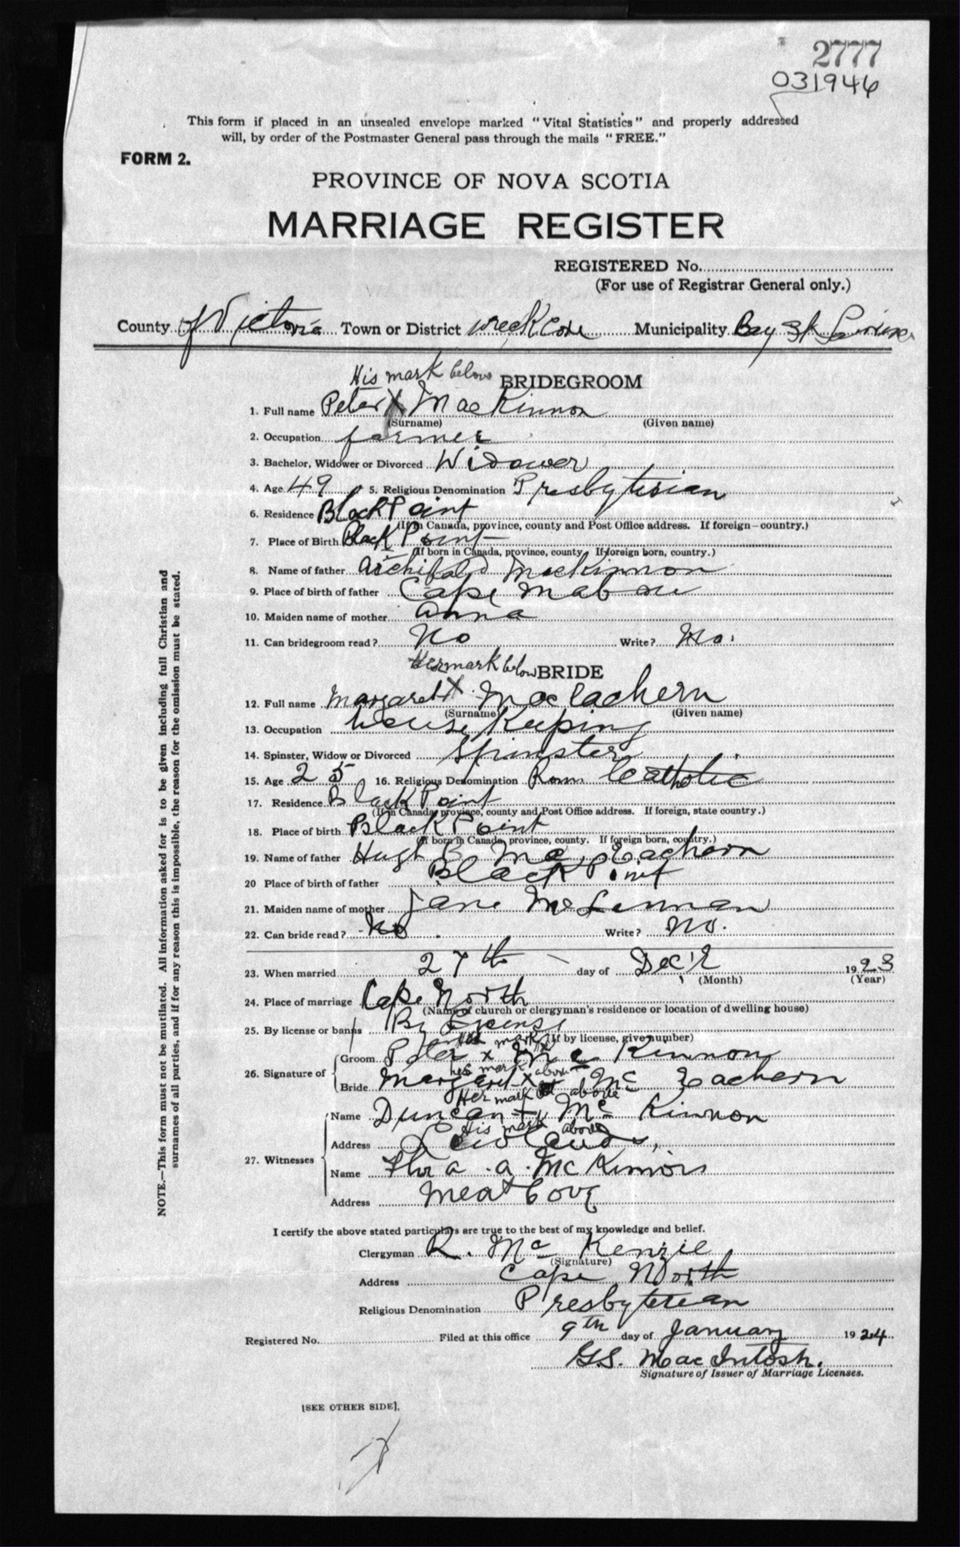 2777
031946
This form if placed in an unsealed envelope marked "Vital Statistics" and properly addressed
will, by order of the Postmaster General pass through the mails "FREE."
FORM 2.
PROVINCE OF NOVA SCOTIA
MARRIAGE REGISTER
REGISTERED No.
(For use of Registrar General only.)
County of Victoria Town or District Wreck Cove Municipality Bay St
His mark below BRIDEGROOM
1. Full name Peter X MacKinnon
(Surname) (Given name)
2. Occupation farmer
3. Bachelor, Widower or Divorced Widower
4. Age 49 5. Religious Denomination Presbyterian
6. Residence Black Point
(If in Canada, province, county and Post Office address. If foreign—country.)
7. Place of Birth Black Point
(If born in Canada, province, county. If foreign born, country.)
8. Name of father Archibald MacKinnon
9. Place of birth of father Cape Mabou
10. Maiden name of mother Anna
11. Can bridegroom read? No Write? No.
Her mark below BRIDE
12. Full name Margaret X MacEachern
(Surname) (Given name)
13. Occupation house Keeping
14. Spinster, Widow or Divorced Spinster
15. Age 25 16. Religious Denomination Rom Catholic
17. Residence Black Point
(If in Canada, province, county and Post Office address. If foreign, state country.)
18. Place of birth Black Point
(If born in Canada, province, county. If foreign born, country.)
19. Name of father Hugh B. McEachern
20 Place of birth of father Black Point
21. Maiden name of mother Jane McLennan
22. Can bride read? No Write? No.
23. When married 27th day of Dec'r 1923
(Month) (Year)
24. Place of marriage Cape North
(Name of church or clergyman's residence or location of dwelling house)
25. By license or banns By
(If by license, give number)
his mark
26. Signature of Groom Peter x McKinnon
his mark above
Bride Margaret X McEachern
Her mark above
27. Witnesses Name Duncan McKinnon
His mark above
Address
Name Flora A. McKinnon
Address Meat Cove
I certify the above stated particulars are true to the best of my knowledge and belief.
Clergyman R. McKenzie
(Signature)
Address Cape North
Religious Denomination Presbyterian
Registered No. Filed at this office 9th day of January 1924
G.S. MacIntosh.
Signature of Issuer of Marriage Licenses.
[SEE OTHER SIDE].
NOTE.—This form must not be mutilated. All information asked for is to be given including full Christian and
surnames of all parties, and if for any reason this is impossible, the reason for the omission must be stated.